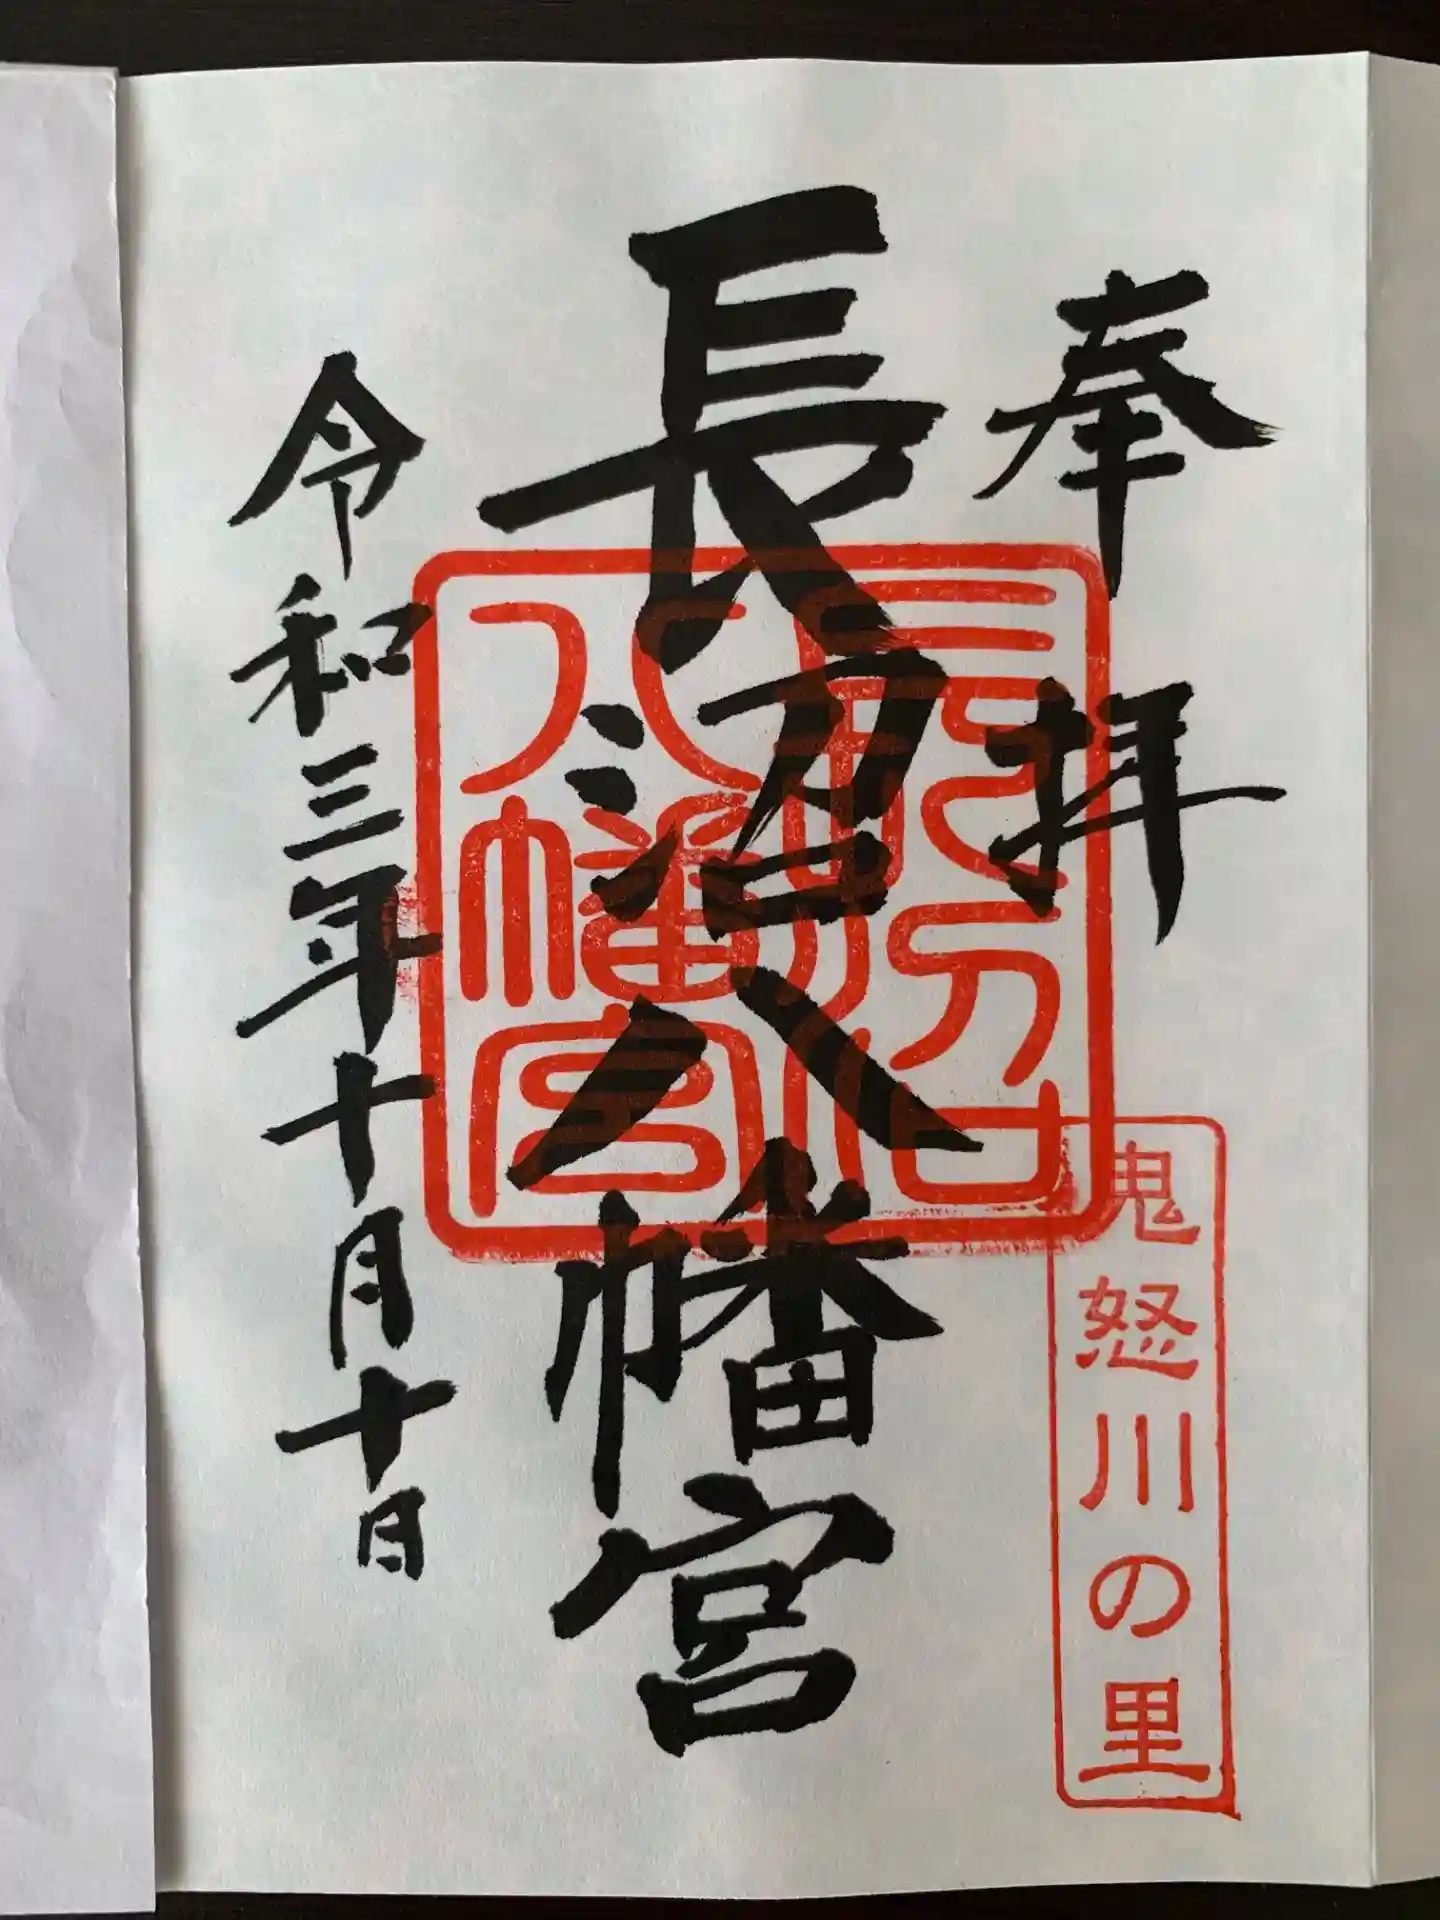 奉拝
長沼八幡宮
令和三年十月十日
長沼
八幡宮
鬼怒川の里